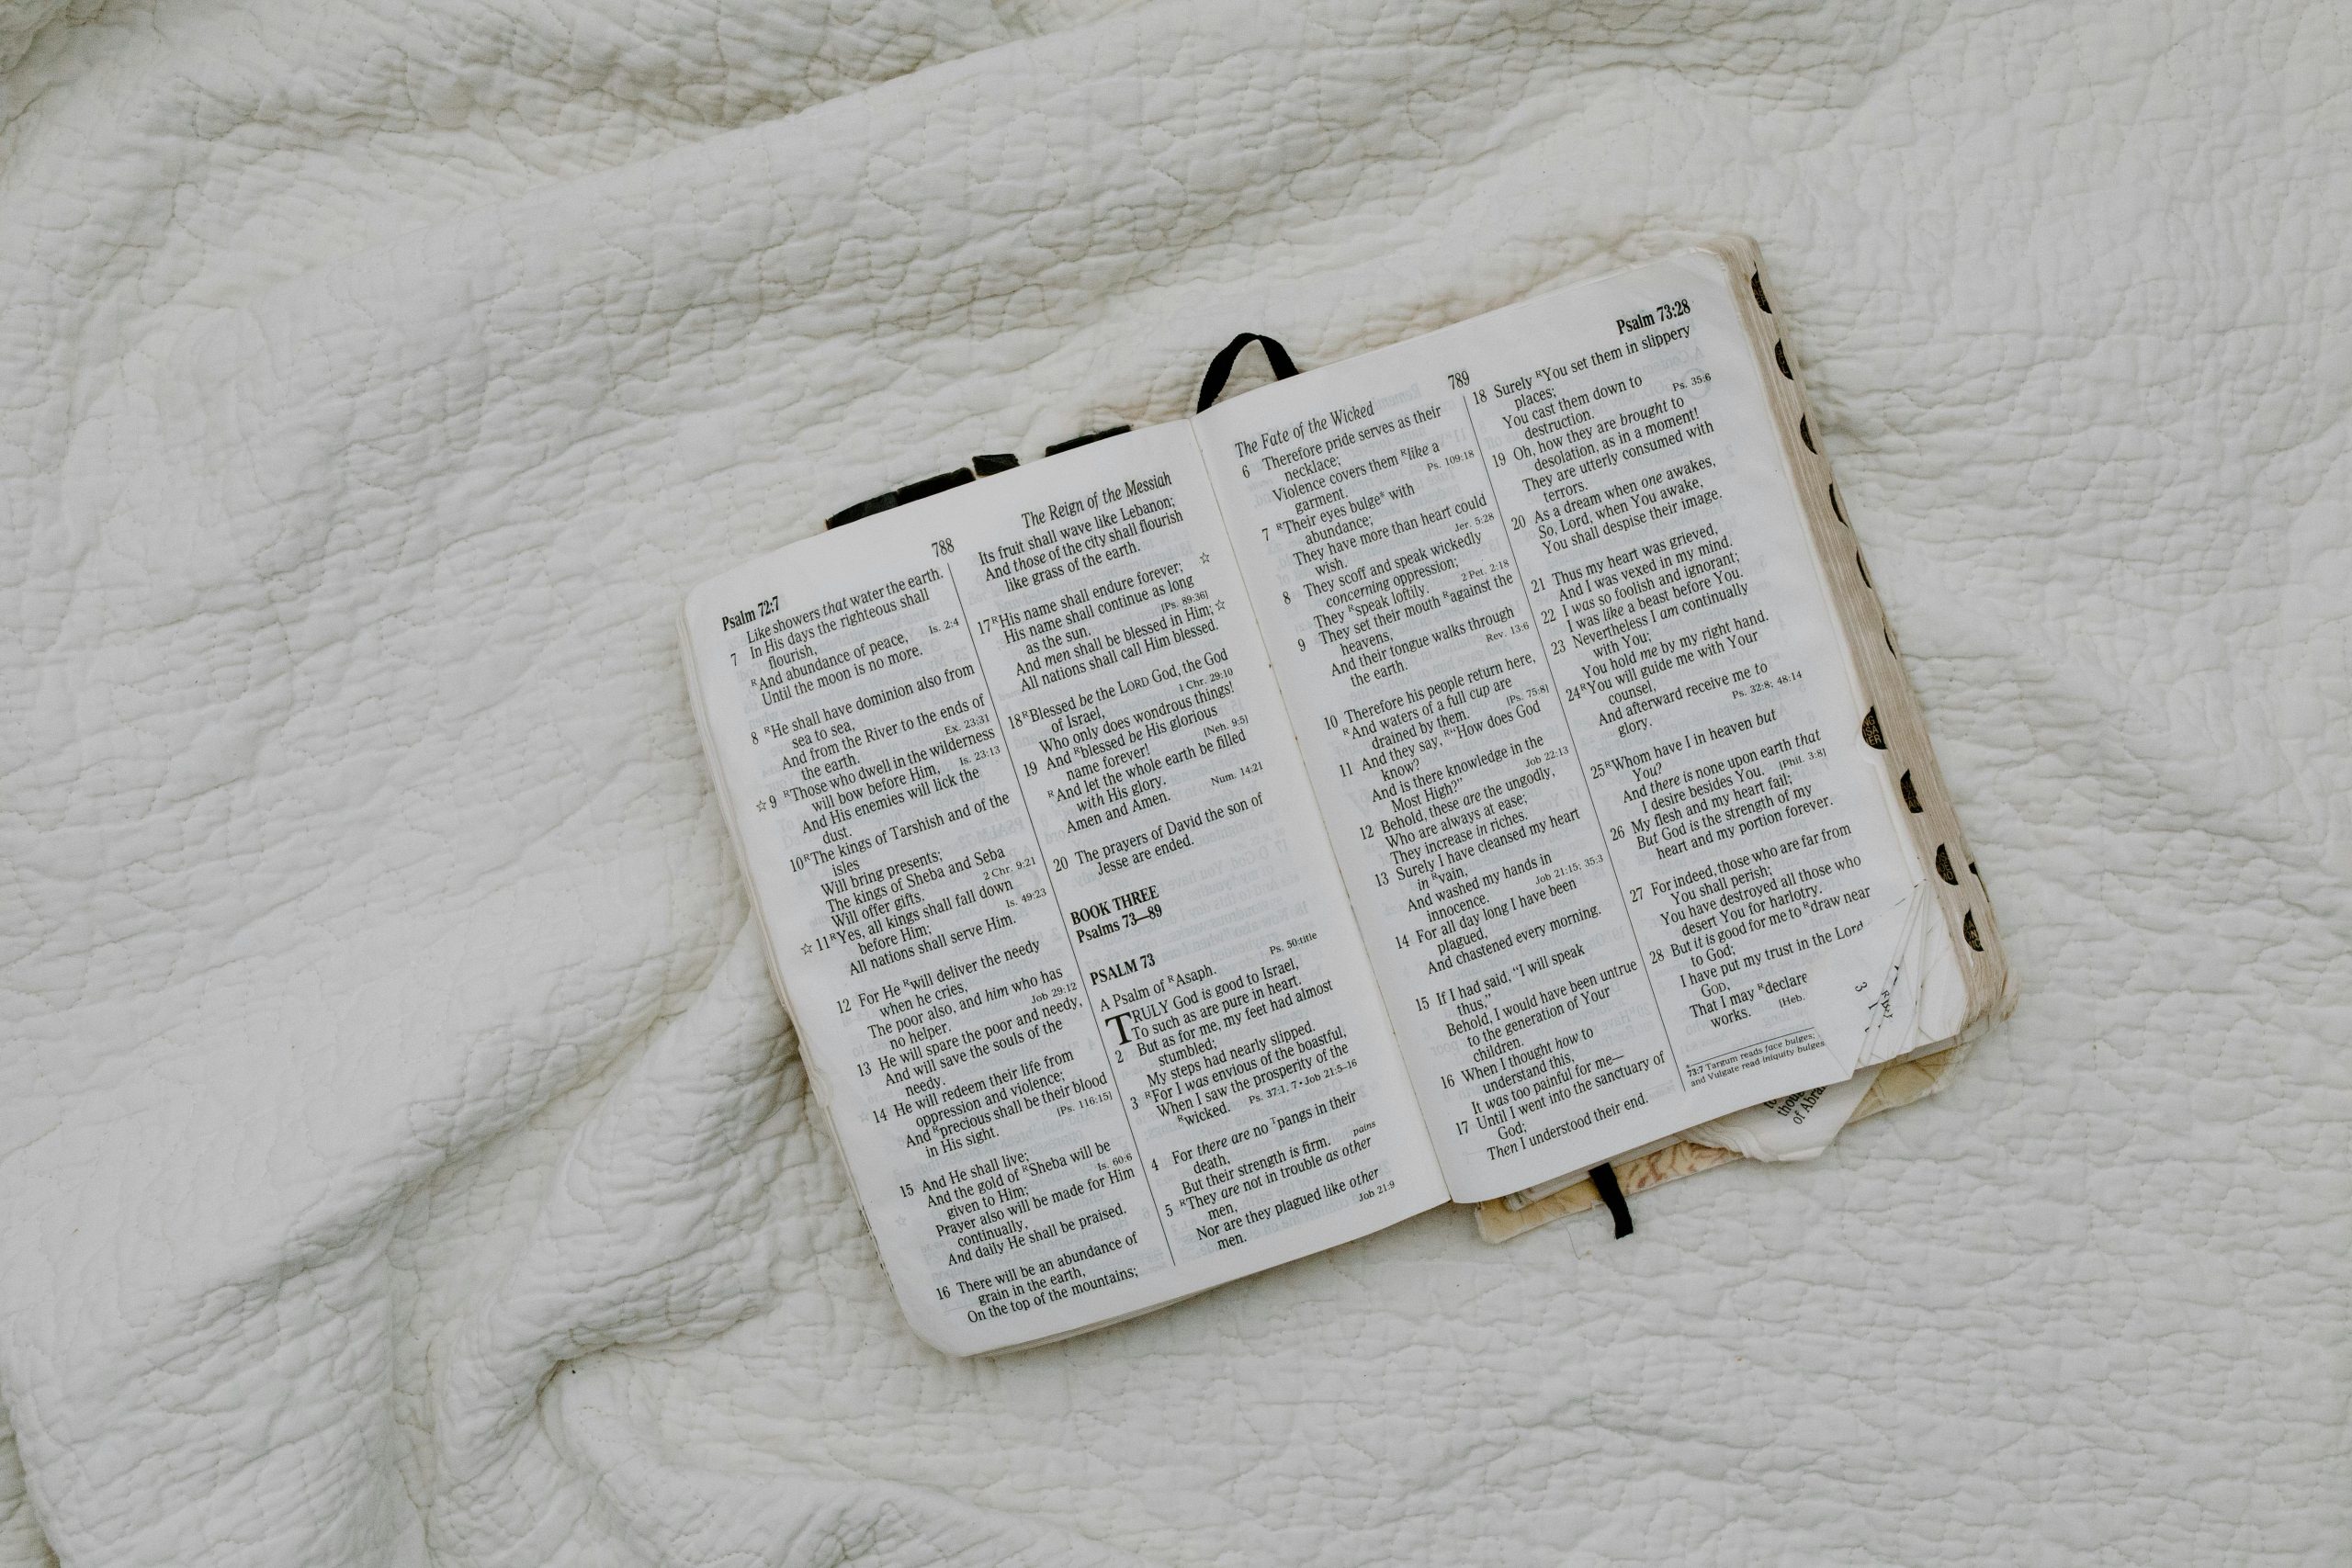 Psalm 72:7
788
Like showers that water the earth.
7 In His days the righteous shall
flourish,
Is. 2:4
ᴿAnd abundance of peace,
Until the moon is no more.
8 ᴿHe shall have dominion also from
sea to sea,
And from the River to the ends of
the earth.
Ex. 23:31
☆9 ᴿThose who dwell in the wilderness
will bow before Him,
Is. 23:13
And His enemies will lick the
dust.
10ᴿThe kings of Tarshish and of the
isles
Will bring presents;
The kings of Sheba and Seba
Will offer gifts.
2 Chr. 9:21
☆11ᴿYes, all kings shall fall down
before Him;
Is. 49:23
All nations shall serve Him.
12 For He ᴿwill deliver the needy
when he cries,
The poor also, and him who has
no helper.
Job 29:12
13 He will spare the poor and needy,
And will save the souls of the
needy.
14 He will redeem their life from
oppression and violence;
And ᴿprecious shall be their blood
in His sight.
[Ps. 116:15]
15 And He shall live;
And the gold of ᴿSheba will be
given to Him;
Is. 60:6
Prayer also will be made for Him
continually,
And daily He shall be praised.
16 There will be an abundance of
grain in the earth,
On the top of the mountains;
The Reign of the Messiah
Its fruit shall wave like Lebanon;
And those of the city shall flourish
like grass of the earth.
17ᴿHis name shall endure forever; ☆
His name shall continue as long
as the sun.
[Ps. 89:36]
And men shall be blessed in Him;☆
All nations shall call Him blessed.
18ᴿBlessed be the LORD God, the God
of Israel,
1 Chr. 29:10
Who only does wondrous things!
19 And ᴿblessed be His glorious
name forever!
[Neh. 9:5]
ᴿAnd let the whole earth be filled
with His glory.
Amen and Amen.
Num. 14:21
20 The prayers of David the son of
Jesse are ended.
BOOK THREE
Psalms 73—89
PSALM 73
A Psalm of ᴿAsaph.
Ps. 50:title
TRULY God is good to Israel,
To such as are pure in heart.
2 But as for me, my feet had almost
stumbled;
My steps had nearly slipped.
3 ᴿFor I was envious of the boastful,
When I saw the prosperity of the
ᴿwicked.
Ps. 37:1, 7 • Job 21:5–16
4 For there are no ᵀpangs in their
death,
pains
But their strength is firm.
5 ᴿThey are not in trouble as other
men,
Nor are they plagued like other
men.
Job 21:9
The Fate of the Wicked
789
Psalm 73:28
6 Therefore pride serves as their
necklace;
Violence covers them ᴿlike a
garment.
Ps. 109:18
7 ᴿTheir eyes bulge* with
abundance;
They have more than heart could
wish.
Jer. 5:28
8 They scoff and speak wickedly
concerning oppression;
They ᴿspeak loftily.
2 Pet. 2:18
9 They set their mouth ᴿagainst the
heavens,
And their tongue walks through
the earth.
Rev. 13:6
10 Therefore his people return here,
ᴿAnd waters of a full cup are
drained by them.
[Ps. 75:8]
11 And they say, ᴿ“How does God
know?
And is there knowledge in the
Most High?”
Job 22:13
12 Behold, these are the ungodly,
Who are always at ease;
They increase in riches.
13 Surely I have cleansed my heart
in ᴿvain,
And washed my hands in
innocence.
Job 21:15; 35:3
14 For all day long I have been
plagued,
And chastened every morning.
15 If I had said, “I will speak
thus,”
Behold, I would have been untrue
to the generation of Your
children.
16 When I thought how to
understand this,
It was too painful for me—
17 Until I went into the sanctuary of
God;
Then I understood their end.
18 Surely ᴿYou set them in slippery
places;
You cast them down to
destruction.
Ps. 35:6
19 Oh, how they are brought to
desolation, as in a moment!
They are utterly consumed with
terrors.
20 As a dream when one awakes,
So, Lord, when You awake,
You shall despise their image.
21 Thus my heart was grieved,
And I was vexed in my mind.
22 I was so foolish and ignorant;
I was like a beast before You.
23 Nevertheless I am continually
with You;
You hold me by my right hand.
24ᴿYou will guide me with Your
counsel,
And afterward receive me to
glory.
Ps. 32:8; 48:14
25ᴿWhom have I in heaven but
You?
And there is none upon earth that
I desire besides You.
[Phil. 3:8]
26 My flesh and my heart fail;
But God is the strength of my
heart and my portion forever.
27 For indeed, those who are far from
You shall perish;
You have destroyed all those who
desert You for harlotry.
28 But it is good for me to ᴿdraw near
to God;
I have put my trust in the Lord
GOD,
That I may ᴿdeclare
works.
[Heb.
*
73:7 Targum reads face bulges;
and Vulgate read iniquity bulges
of Abra